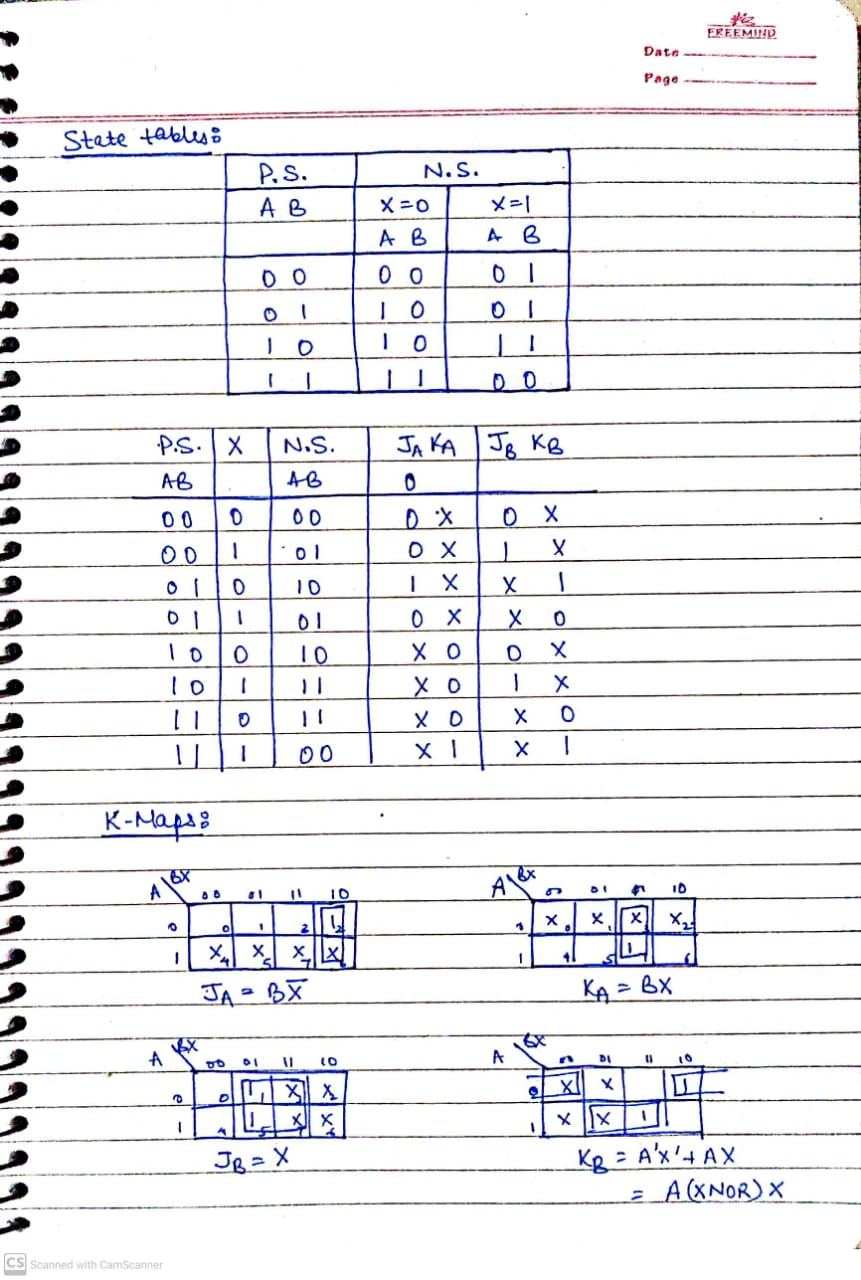 FREEMIND
Date
Page
State tables:
P.S. N.S.
A B X=0 X=1
A B A B
0 0 0 0 0 1
0 1 1 0 0 1
1 0 1 0 1 1
1 1 1 1 0 0
P.S. X N.S. JA KA JB KB
AB AB 0
00 0 00 0 X 0 X
00 1 01 0 X 1 X
01 0 10 1 X X 1
01 1 01 0 X X 0
10 0 10 X 0 0 X
10 1 11 X 0 1 X
11 0 11 X 0 X 0
11 1 00 X 1 X 1
K-Maps:
A BX 00 01 11 10
0 0 1 2 1 2
1 X4 X5 X7 X6
JA = BX̅
A BX 00 01 11 10
X0 X1 X X2
1 4 5 1 6
KA = BX
A BX 00 01 11 10
0 0 1 1 X3 X2
1 4 1 5 X7 X6
JB = X
A BX 00 01 11 10
0 X X 1
1 X X 1
KB = A'X' + AX
= A (XNOR) X
CS Scanned with CamScanner